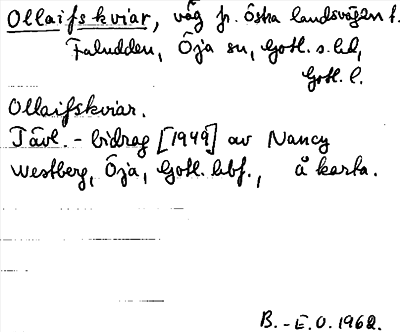 Ollaifskviar, väg fr. östra landsvägen t.
Faludden, Öja sn, Gotl. s. hd,
Gotl. l.
Ollaifskviar.
Tävl.-bidrag [1949] av Nancy
Westberg, Öja, Gotl. hbf., å karta.
B.-E.O. 1962.